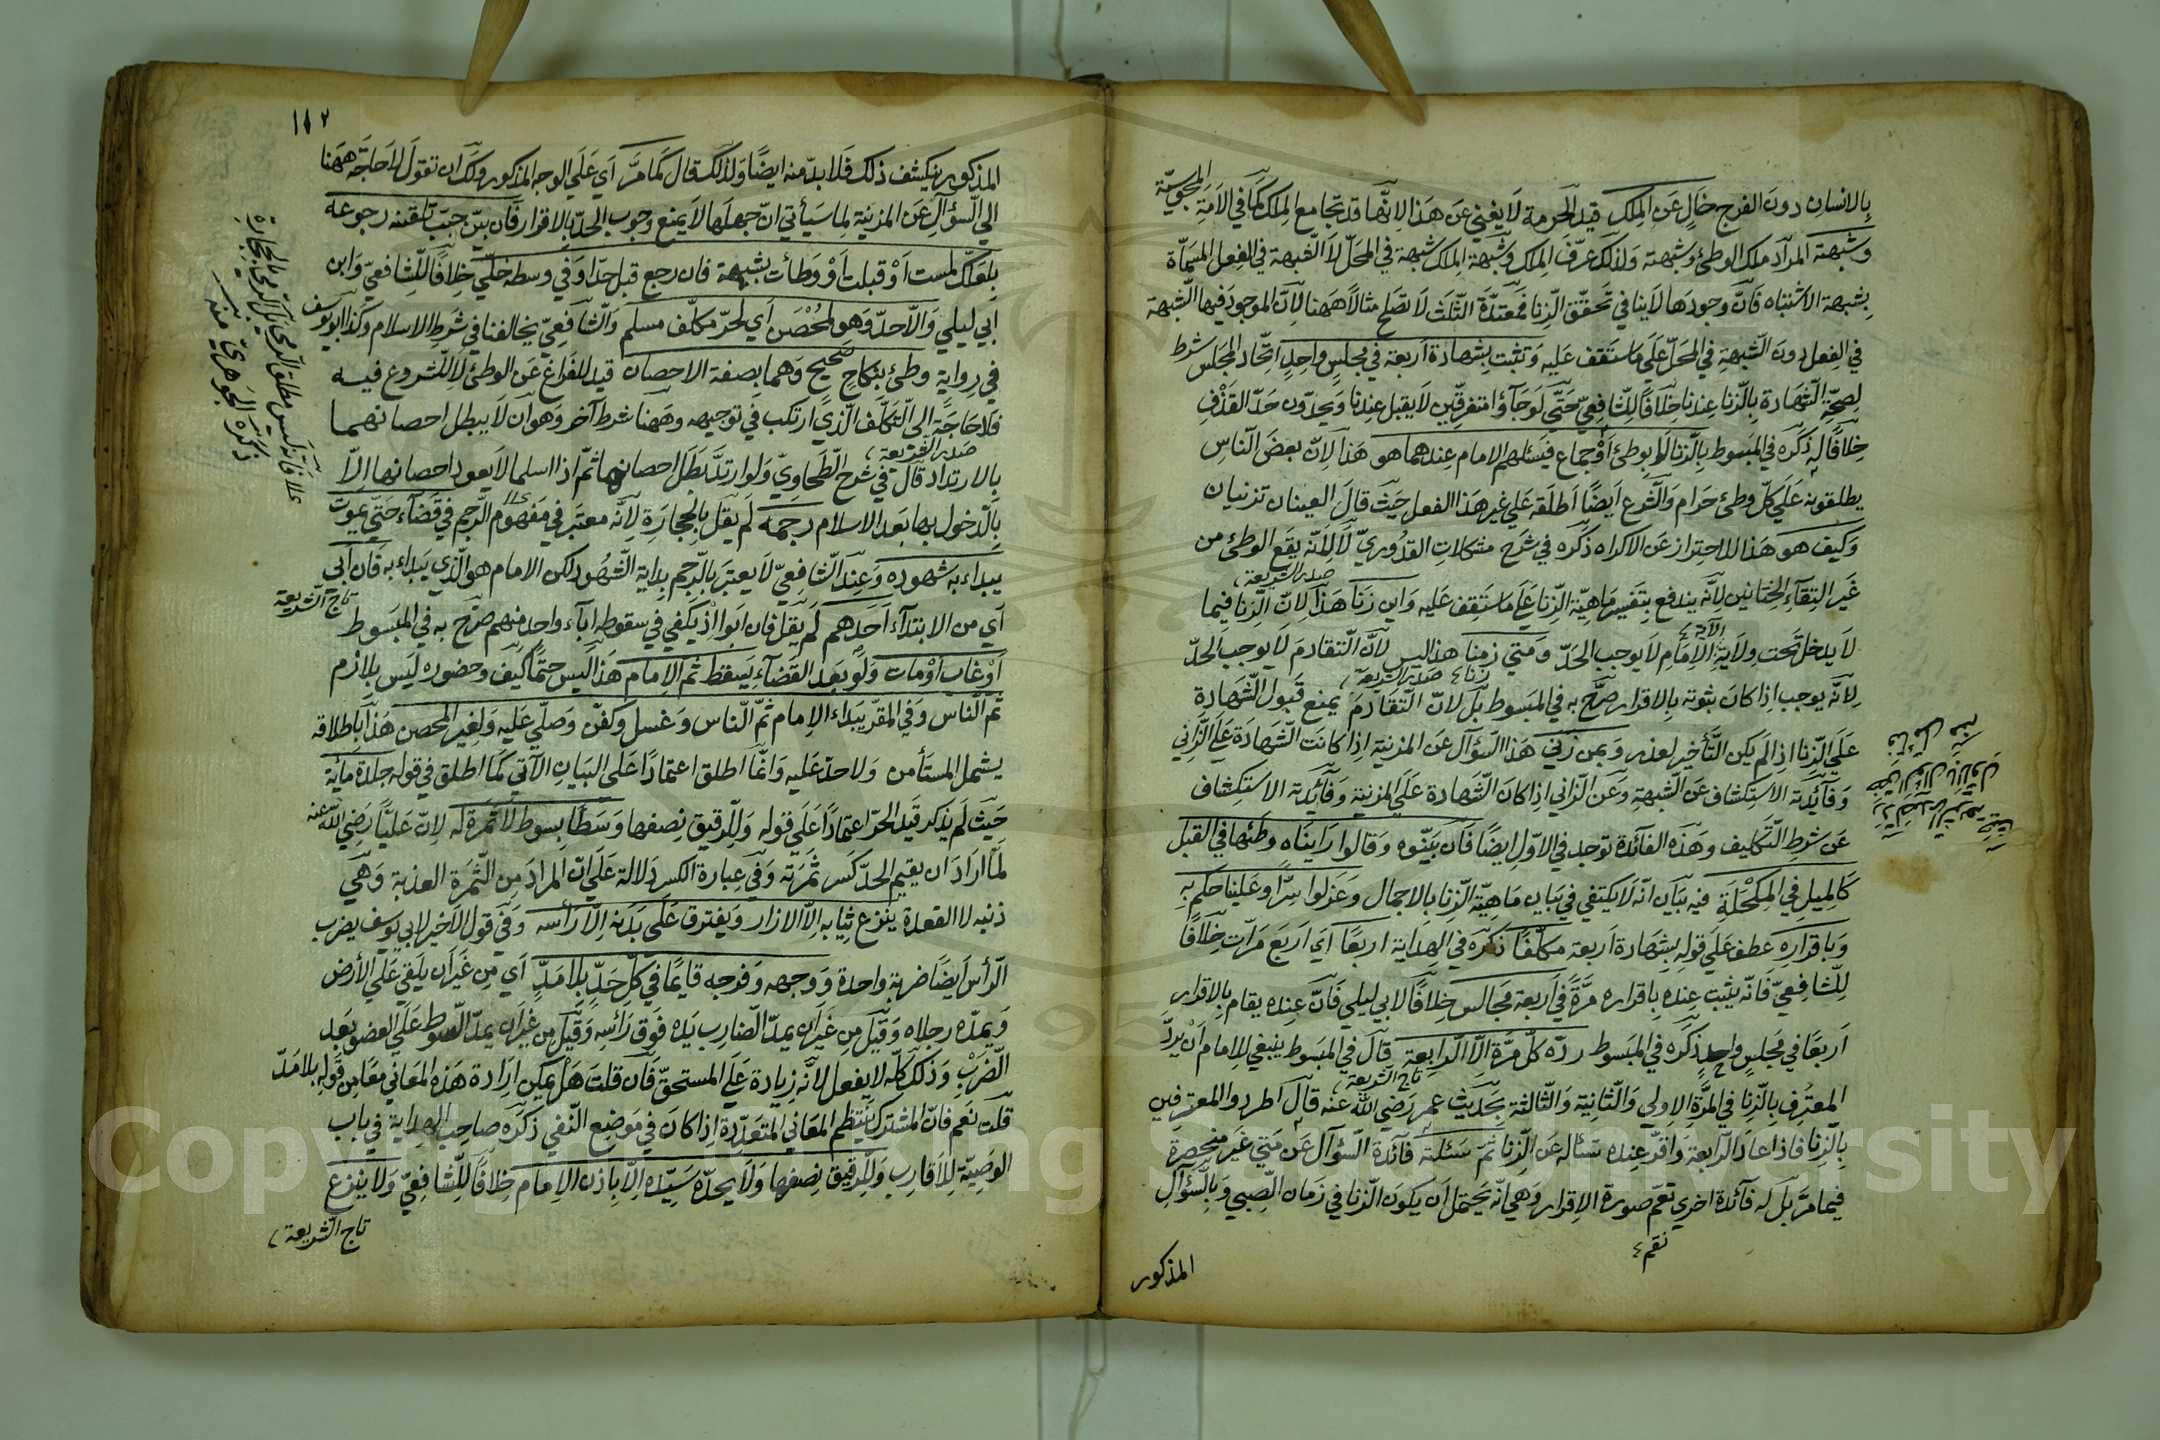 بالانسان دون الفرج خال عن الملك قيد الحرمة لا يغني عن هذا لانها قد تجامع الملك كما في الامة المجوسية
وشبهته المراد ملك الوطئ وشبهته ولذلك عرف الملك وشبهة الملك شبهة في المحل لا الشبهة في الفعل المسماة
بشبهة الاشتباه فان وجودها لا ينافي تحقق الزنا فمعتدة الثلث لا تصلح مثالا ههنا لان الموجود فيها الشبهة
في الفعل دون الشبهة في المحل على ما ستقف عليه وتثبت بشهادة اربعة في مجلس واحد اتحاد المجلس شرط
لصحة الشهادة بالزنا عندنا خلافا للشافعي حتى لو جاؤا متفرقين لا يقبل عندنا ويحدون حد القذف
خلافا له ذكره في المبسوط بالزنا لا بوطئ او جماع فيسئلهم الامام عنه ما هو هذا لان بعض الناس
يطلقونه على كل وطئ حرام والشرع ايضا اطلقه على غير هذا الفعل حيث قال العينان تزنيان
وكيف هو هذا للاحتراز عن الاكراه ذكره في شرح مشكلات القدوري لا لانه يقع الوطئ من
صدر الشريعة
غير التقاء الختانين لانه يندفع بتفسير ماهية الزنا على ما ستقف عليه واين زنا هذا لان الزنا فيما
لا يدخل تحت ولاية الامام لا يوجب الحد ومتى زنا هذا ليس لان التقادم لا يوجب الحد
صدر الشريعة
لانه يوجب اذا كان ثبوته بالاقرار صرح به في المبسوط بل لان التقادم يمنع قبول الشهادة
على الزنا اذا لم يكن التأخير لعذر وبمن زنى هذا السؤال عن المزنية اذا كانت الشهادة على الزاني
وفائدته الاستكشاف عن الشبهة وعن الزاني اذا كان الشهادة على المزنية وفائدته الاستكشاف
عن شرط التكليف وهذه الفائدة توجد في الاول ايضا فان بينوه وقالوا رايناه وطئها في القبل
كالميل في المكحلة فيه بيان انه لا يكتفي في بيان ماهية الزنا بالاجمال وعدلوا سرا وعلنا حكم به
وباقراره عطف على قوله بشهادة اربعة مكلفا ذكره في الهداية اربعا اي اربع مرات خلافا
للشافعي فانه يثبت عنده باقراره مرة في اربعة مجالس خلافا لابي ليلي فان عنده يقام بالاقرار
اربعا في مجلس واحد ذكره في المبسوط رده كل مرة الا الرابعة قال في المبسوط ينبغي للامام ان يرد
تاج الشريعة
المعترف بالزنا في المرة الاولي والثانية والثالثة بحديث عمر رضي الله عنه قال اطردوا المعترفين
بالزنا فاذا عاد الرابعة واقر عنده سئاله عن الزنا ثم سئلته فائدة السؤال عن متى غير منحصرة
فيما مر بل له فائدة اخرى تعم صورة الاقرار وهي انه يحتمل ان يكون الزنا في زمان الصبي وبالسؤال
المذكور
١١٢
المذكور ينكشف ذلك فلا بد منه ايضا ولذلك قال كما مر اي على الوجه المذكور ولك ان تقول لا حاجة ههنا
الي السؤال عن المزنية لما سيأتي ان جهلها لا يمنع وجوب الحد بالاقرار فان بين حب تلقنه رجوعه
بلعلك لمست او قبلت او وطأت بشبهة فان رجع قبل حده او في وسطه خلي خلافا للشافعي وابن
ابي ليلي والا حد وهو لمحصن اي لحر مكلف مسلم والشافعي يخالفنا في شرط الاسلام وكذا ابو يوسف
في رواية وطئ بنكاح صحيح وهما بصفة الاحصان قيد للفراغ عن الوطئ لا للشروع فيه
فلا حاجة الى التكلف الذي ارتكب في توجيهه وههنا شرط آخر وهو ان لا يبطل احصانهما
صدر الشريعة
بالارتداد قال في شرح الطحاوي ولو ارتد بطل احصانهما ثم اذا اسلما لا يعود احصانهما الا
بالدخول بها بعد الاسلام رجمه لم يقل بالحجارة لانه معتبر في مفهوم الرجم في فضاء حتى يموت
يبداء به شهوده وعند الشافعي لا يعتبر بالرجم بداية الشهود لكن الامام هو الذي يبداء به فان ابي
تاج الشريعة
اي من الابتداء احدهم لم يقل فان ابوا اذ يكفي في سقوطه اباء واحد منهم صرح به في المبسوط
او غاب او مات ولو بعد القضاء يسقط ثم الامام هذا ليس حتما كيف وحضوره ليس بلازم
ثم الناس وفي المقر يبداء الامام ثم الناس وغسل وكفن وصلي عليه ولغير المحصن هذا باطلاقه
يشمل المستأمن ولا حد عليه وانما اطلق اعتمادا على البيان الآتي كما اطلق في قوله جلدة مائة
حيث لم يذكر قيد الحر اعتمادا على قوله وللرقيق نصفها وسطا بسوط لا ثمرة له لان عليا رضي الله عنه
لما اراد ان يقيم الحد كسر ثمرته وفي عبارة الكسر دلالة على ان المراد من الثمرة العذبة وهي
ذنبه لا العقدة ينزع ثيابه الا الازار ويفترق على بدنه الا رأسه وفي قول الاخير لابي يوسف يضرب
الرأس ايضا ضربة واحدة ووجهه وفرجه قايما في كل حد بلا مد اي من غير ان يلقي علي الأرض
ويمد رجلاه وقيل من غير ان يمد الضارب يده فوق رأسه وقيل من غير ان يمد السوط على العضو بعد
الضرب وذلك كله لا يفعل لانه زيادة على المستحق فان قلت هل يمكن ارادة هذه المعاني معا من قوله بلا مد
قلت نعم فان المشترك ينتظم المعاني المتعددة اذا كان في موضع النفي ذكره صاحب الهداية في باب
الوصية للاقارب وللرقيق نصفها ولا يحده سيده الا باذن الامام خلافا للشافعي ولا ينزع
تاج الشريعة
ذكره الجوهري منه
Copyright © King Saud University